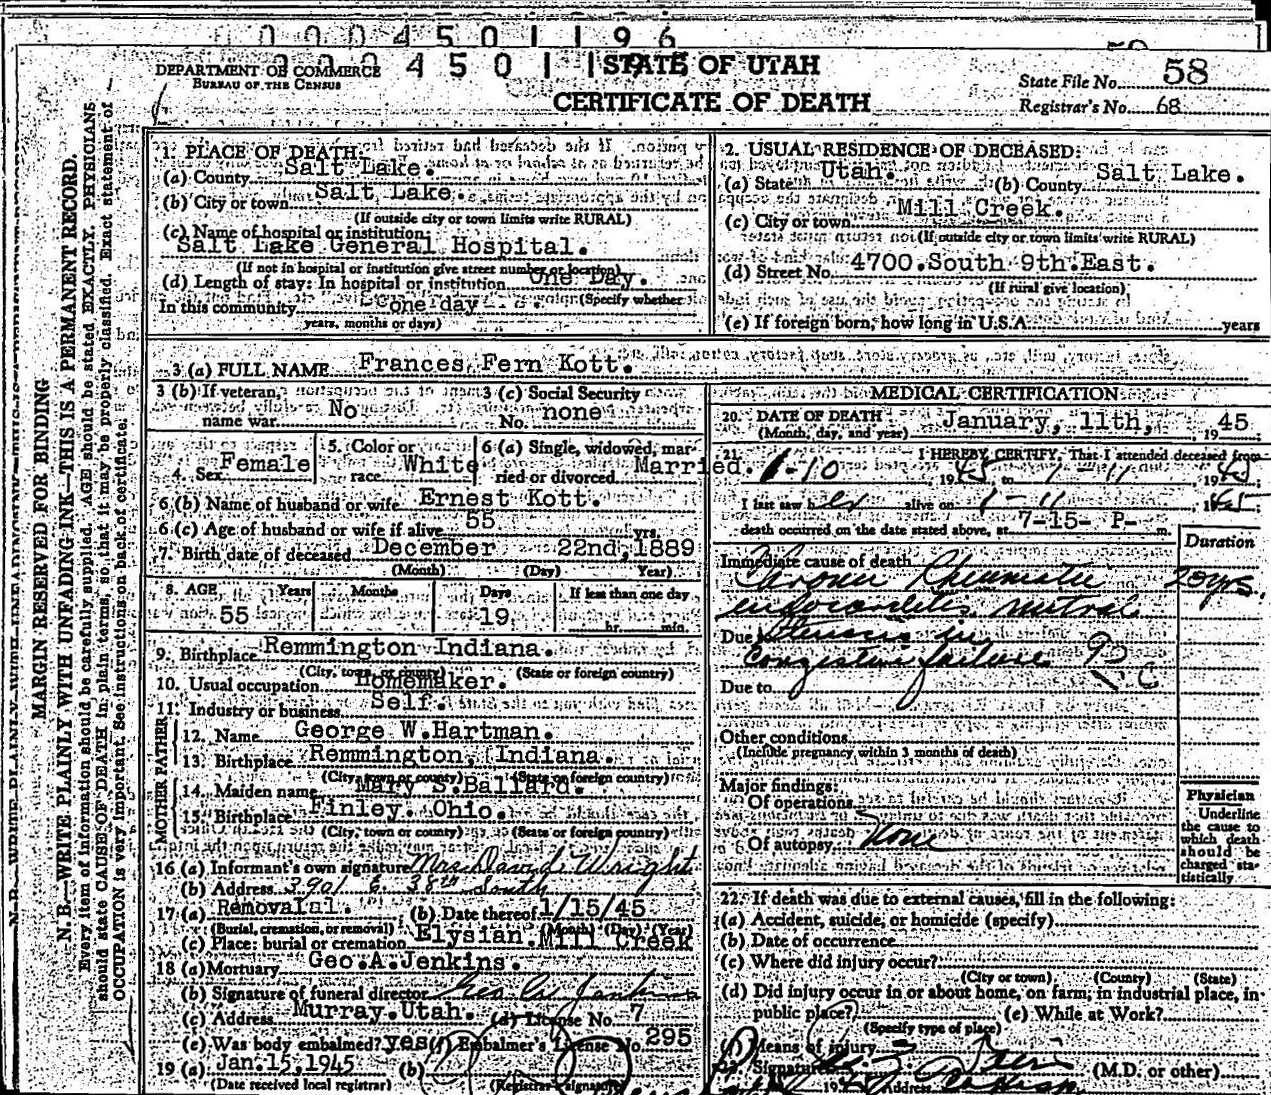 0004501196
STATE OF UTAH
CERTIFICATE OF DEATH
DEPARTMENT OF COMMERCE
BUREAU OF THE CENSUS
State File No. 58
Registrar's No. 68
MARGIN RESERVED FOR BINDING
N. B.—WRITE PLAINLY WITH UNFADING INK—THIS IS A PERMANENT RECORD.
Every item of information should be carefully supplied. AGE should be stated EXACTLY. PHYSICIANS
should state CAUSE OF DEATH in plain terms, so that it may be properly classified. Exact statement of
OCCUPATION is very important. See instructions on back of certificate.
1. PLACE OF DEATH:
(a) County Salt Lake.
(b) City or town Salt Lake.
(If outside city or town limits write RURAL)
(c) Name of hospital or institution:
Salt Lake General Hospital.
(If not in hospital or institution give street number or location)
(d) Length of stay: In hospital or institution One Day.
(Specify whether
In this community one day
years, months or days)
2. USUAL RESIDENCE OF DECEASED:
(a) State Utah. (b) County Salt Lake.
(c) City or town Mill Creek.
(If outside city or town limits write RURAL)
(d) Street No. 4700.South 9th.East.
(If rural give location)
(e) If foreign born, how long in U.S.A. years
3 (a) FULL NAME Frances Fern Kott.
3 (b) If veteran, name war No
3 (c) Social Security No. none
4. Sex Female
5. Color or race White
6 (a) Single, widowed, married or divorced Married.
6 (b) Name of husband or wife Ernest Kott.
6 (c) Age of husband or wife if alive 55 yrs.
7. Birth date of deceased December 22nd, 1889
(Month) (Day) (Year)
8. AGE Years Months Days If less than one day
55 19 hr. min.
9. Birthplace Remmington Indiana.
(City, town, or county) (State or foreign country)
10. Usual occupation Homemaker.
11. Industry or business Self.
FATHER
12. Name George W.Hartman.
13. Birthplace Remmington, Indiana.
(City, town or county) (State or foreign country)
MOTHER
14. Maiden name Mary S.Ballard.
15. Birthplace Finley, Ohio.
(City, town or county) (State or foreign country)
16 (a) Informant's own signature Mrs David Wright
(b) Address 3901 E. 38th South
17 (a) Removalal. (b) Date thereof 1/15/45
(Burial, cremation, or removal) (Month) (Day) (Year)
(c) Place: burial or cremation Elysian.Mill Creek
18 (a) Mortuary Geo.A.Jenkins.
(b) Signature of funeral director Geo A. Jenkins
(c) Address Murray.Utah. (d) License No. 7
(e) Was body embalmed? yes (f) Embalmer's License No. 295
19 (a) Jan.15,1945 (b)
(Date received local registrar) (Registrar's signature)
MEDICAL CERTIFICATION
20. DATE OF DEATH January, 11th, 1945
(Month, day, and year)
21. I HEREBY CERTIFY, That I attended deceased from
1-10, 1945 to 1-11 1945
I last saw her alive on 1-11 1945
death occurred on the date stated above, at 7-15- P- m.
Duration
Immediate cause of death
Chronic Rheumatic 20yrs.
endocarditis mitral
Due to stenosis in
congestive failure
Due to
Other conditions
(Include pregnancy within 3 months of death)
Major findings:
Of operations
Of autopsy None
Physician
Underline
the cause to
which death
should be
charged sta-
tistically
22. If death was due to external causes, fill in the following:
(a) Accident, suicide, or homicide (specify)
(b) Date of occurrence
(c) Where did injury occur?
(City or town) (County) (State)
(d) Did injury occur in or about home, on farm, in industrial place, in
public place? (e) While at Work?
(Specify type of place)
(f) Means of injury
Signature (M.D. or other)
Address